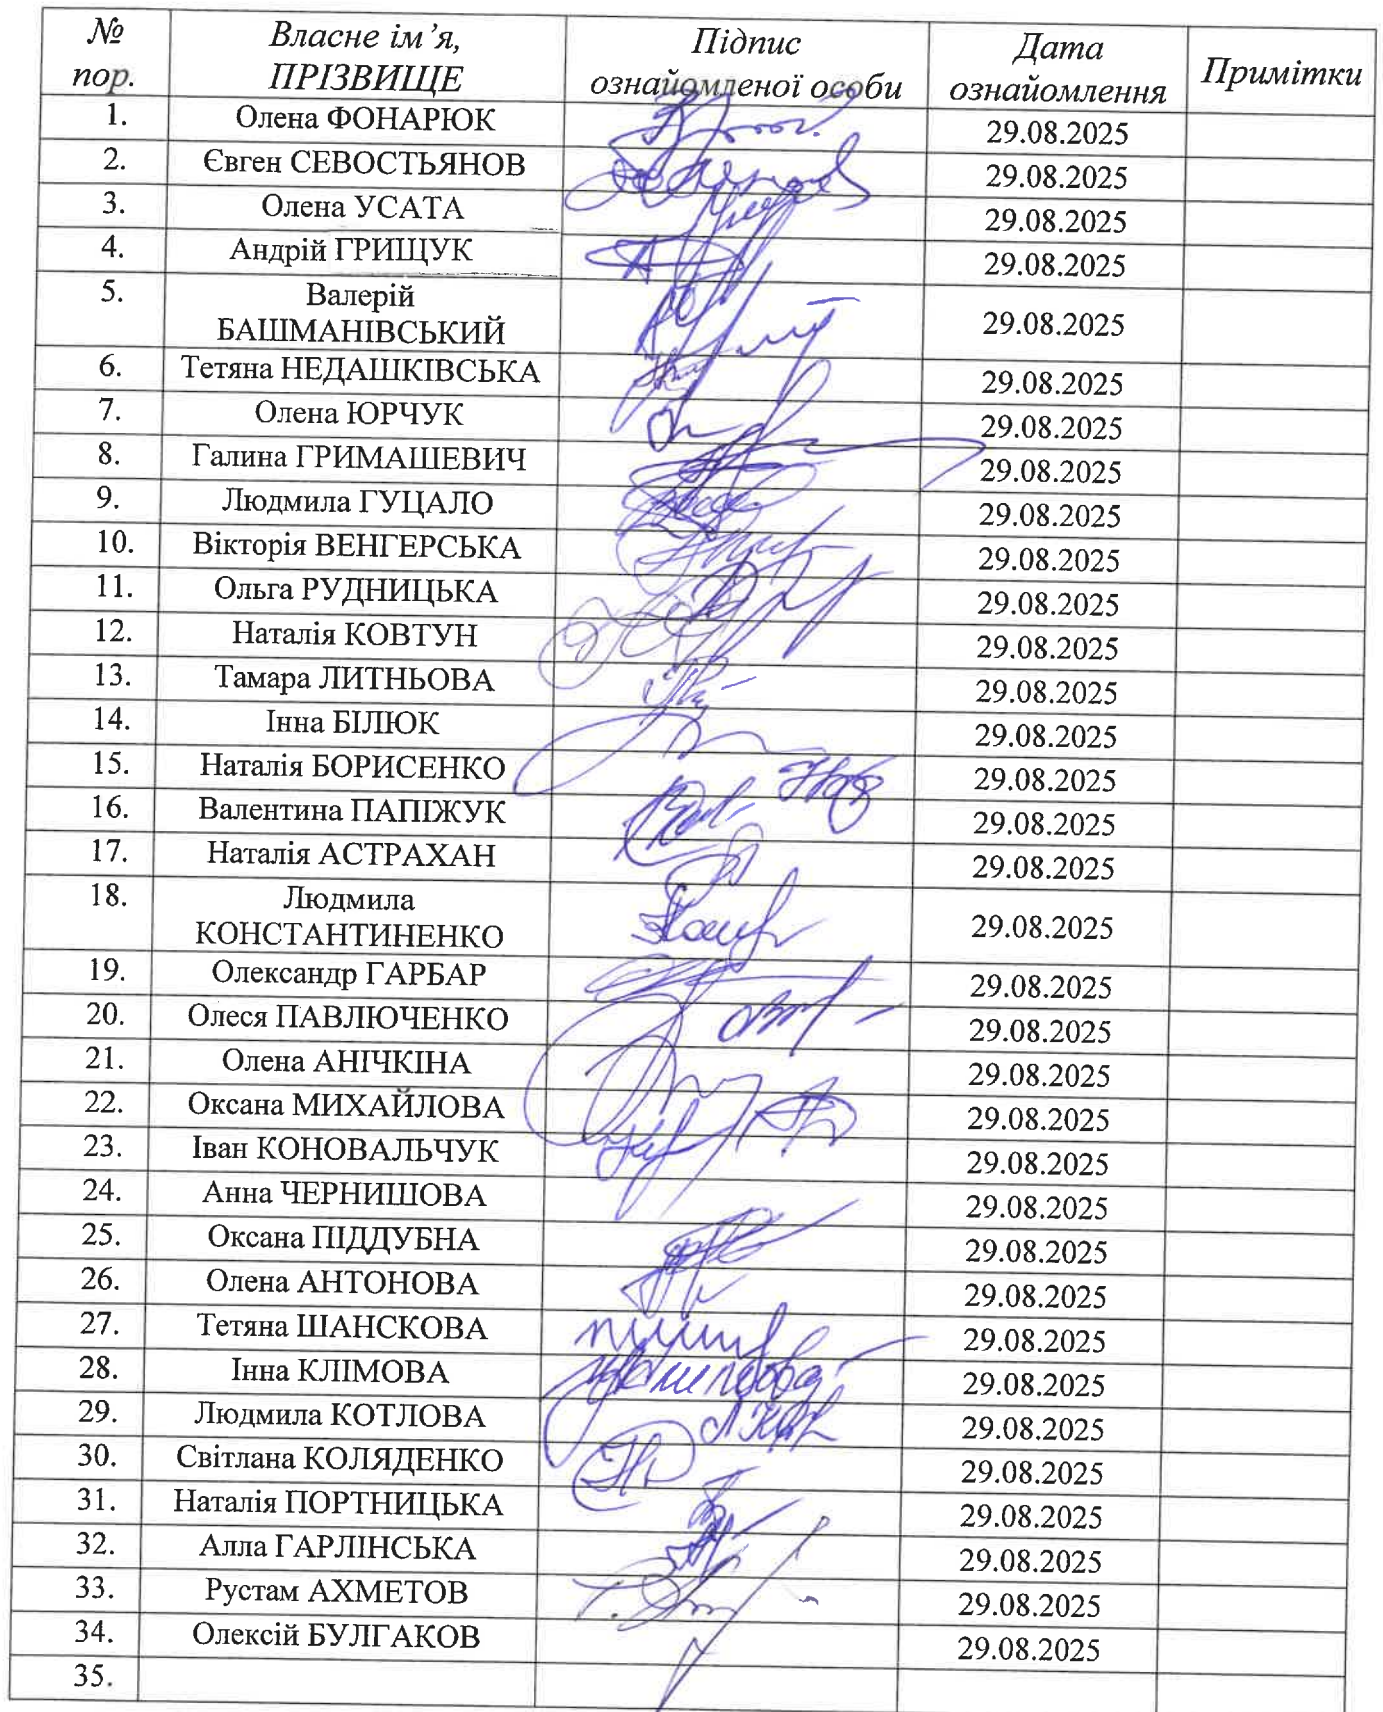 № пор. Власне ім’я, ПРІЗВИЩЕ Підпис ознайомленої особи Дата ознайомлення Примітки
1. Олена ФОНАРЮК 29.08.2025
2. Євген СЕВОСТЬЯНОВ 29.08.2025
3. Олена УСАТА 29.08.2025
4. Андрій ГРИЩУК 29.08.2025
5. Валерій БАШМАНІВСЬКИЙ 29.08.2025
6. Тетяна НЕДАШКІВСЬКА 29.08.2025
7. Олена ЮРЧУК 29.08.2025
8. Галина ГРИМАШЕВИЧ 29.08.2025
9. Людмила ГУЦАЛО 29.08.2025
10. Вікторія ВЕНГЕРСЬКА 29.08.2025
11. Ольга РУДНИЦЬКА 29.08.2025
12. Наталія КОВТУН 29.08.2025
13. Тамара ЛИТНЬОВА 29.08.2025
14. Інна БІЛЮК 29.08.2025
15. Наталія БОРИСЕНКО 29.08.2025
16. Валентина ПАПІЖУК 29.08.2025
17. Наталія АСТРАХАН 29.08.2025
18. Людмила КОНСТАНТИНЕНКО 29.08.2025
19. Олександр ГАРБАР 29.08.2025
20. Олеся ПАВЛЮЧЕНКО 29.08.2025
21. Олена АНІЧКІНА 29.08.2025
22. Оксана МИХАЙЛОВА 29.08.2025
23. Іван КОНОВАЛЬЧУК 29.08.2025
24. Анна ЧЕРНИШОВА 29.08.2025
25. Оксана ПІДДУБНА 29.08.2025
26. Олена АНТОНОВА 29.08.2025
27. Тетяна ШАНСКОВА 29.08.2025
28. Інна КЛІМОВА 29.08.2025
29. Людмила КОТЛОВА 29.08.2025
30. Світлана КОЛЯДЕНКО 29.08.2025
31. Наталія ПОРТНИЦЬКА 29.08.2025
32. Алла ГАРЛІНСЬКА 29.08.2025
33. Рустам АХМЕТОВ 29.08.2025
34. Олексій БУЛГАКОВ 29.08.2025
35.